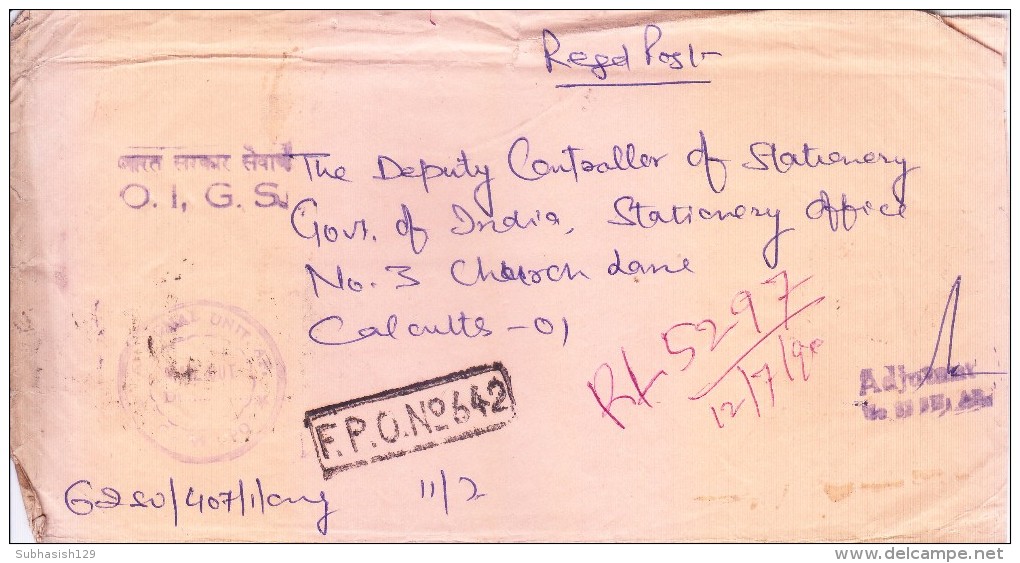 Regd Post
भारत सरकार सेवार्थ
O. I, G. S.
The Deputy Controller of Stationery
Govt. of India, Stationery Office
No. 3 Church Lane
Calcutta - 01
RL 5297
12/7/90
Adjutant
F.P.O. No 642
11/2
Subhasish129
www.delcampe.net